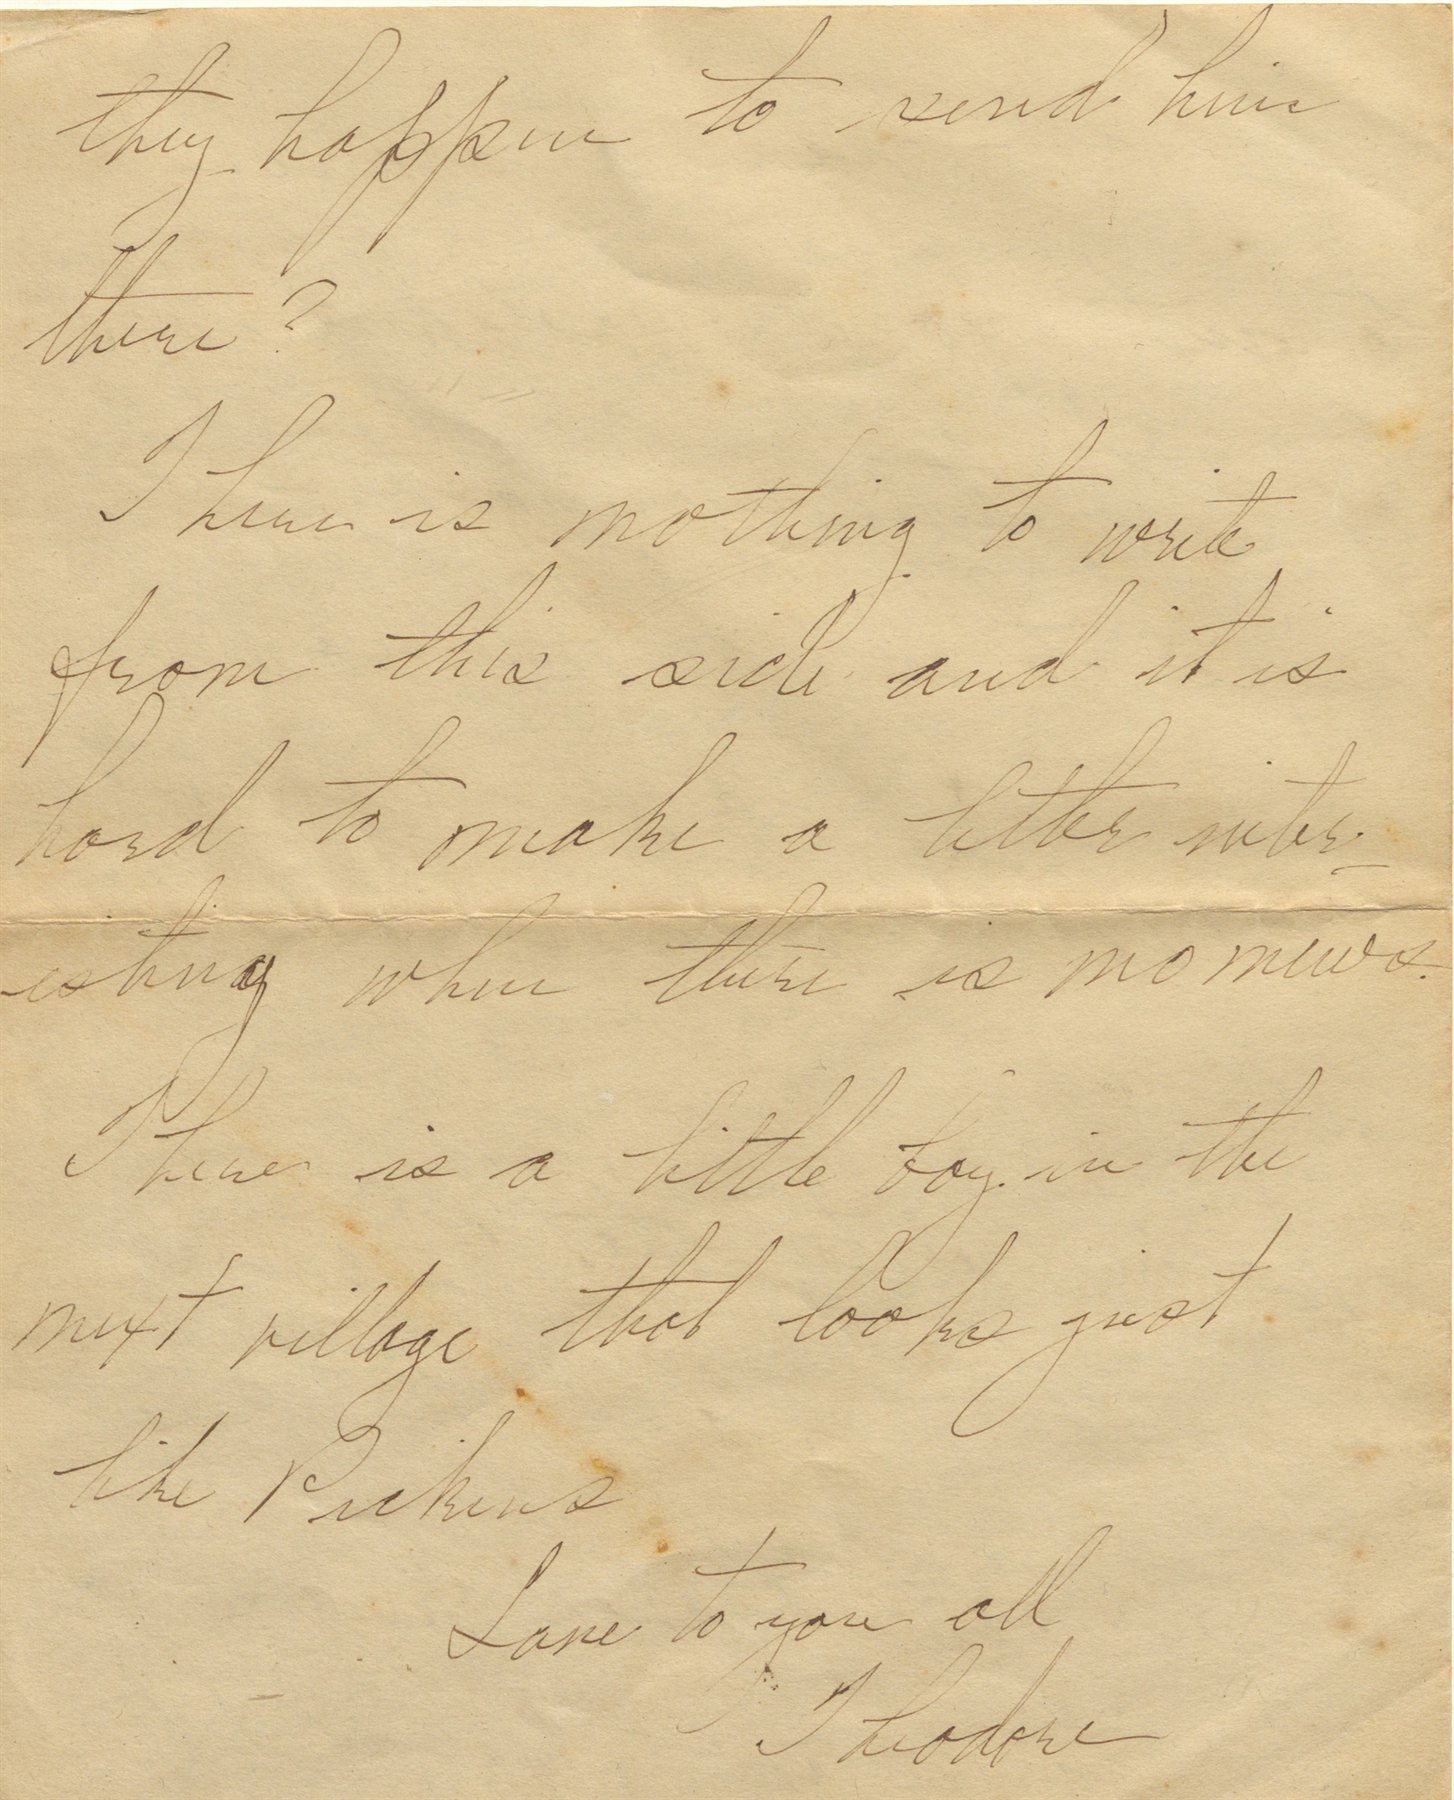 they happen to send him
there?
There is nothing to write
from this side and it is
hard to make a letter inter-
esting when there is no news.
There is a little boy in the
next village that looks just
like Pickens
Love to you all
Theodore